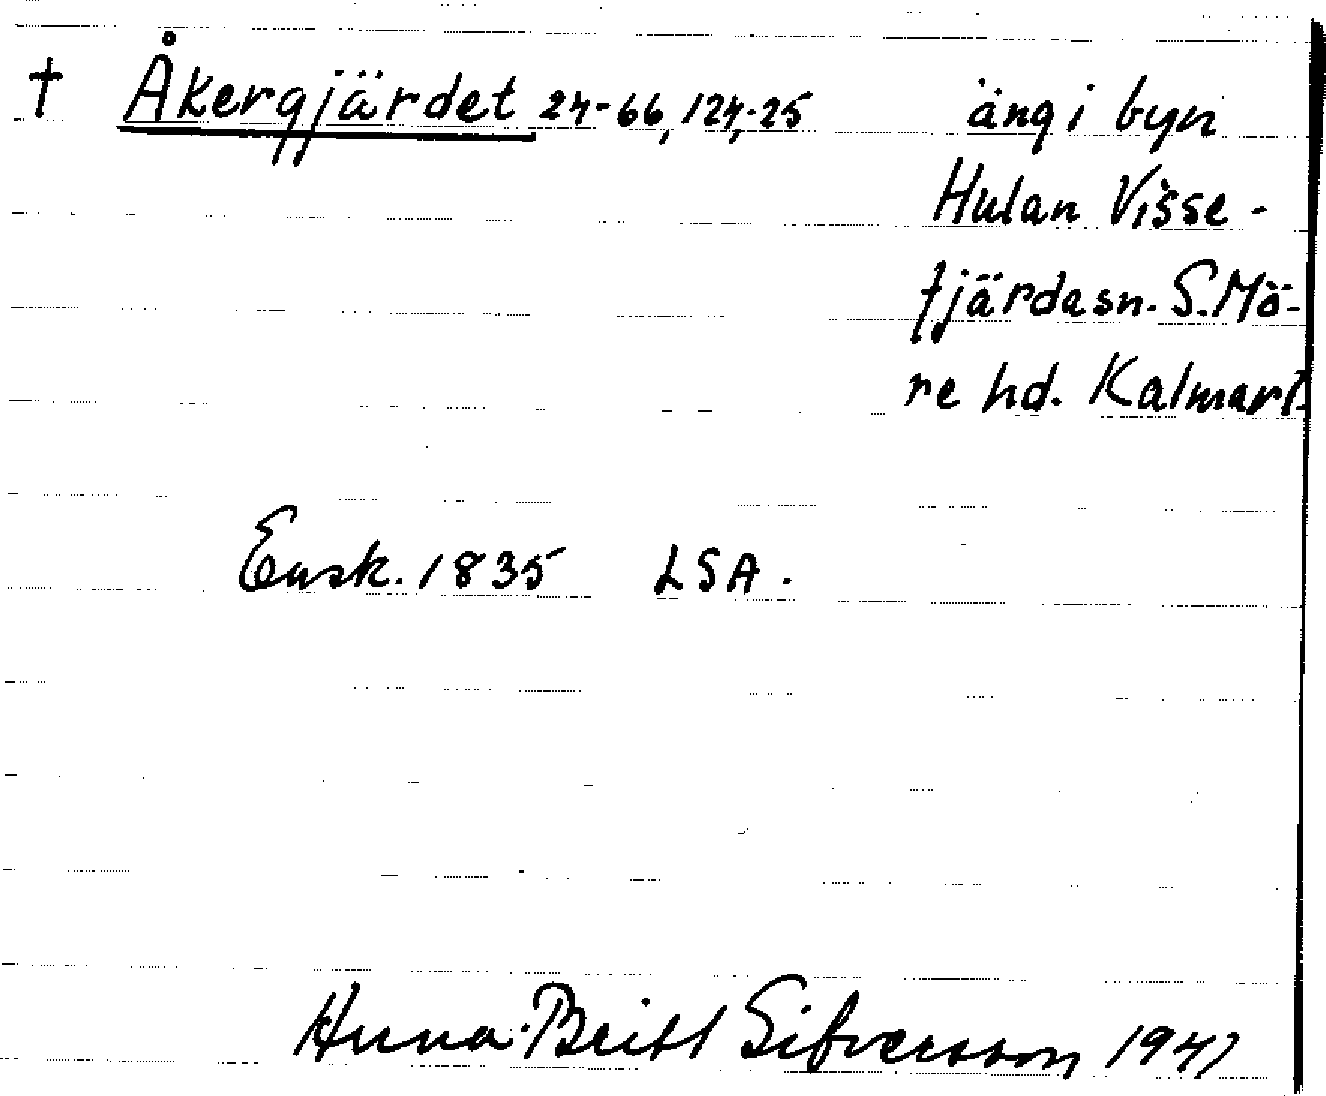 † Åkergjärdet 24-66, 124,-25 äng i byn
Hulan Visse-
fjärda sn. S. Mö-
re hd. Kalmar l.
Ensk. 1835 LSA.
Anna-Britt Sifversson 1947